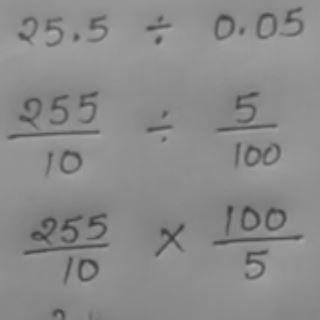 25.5 ÷ 0.05
255/10 ÷ 5/100
255/10 × 100/5